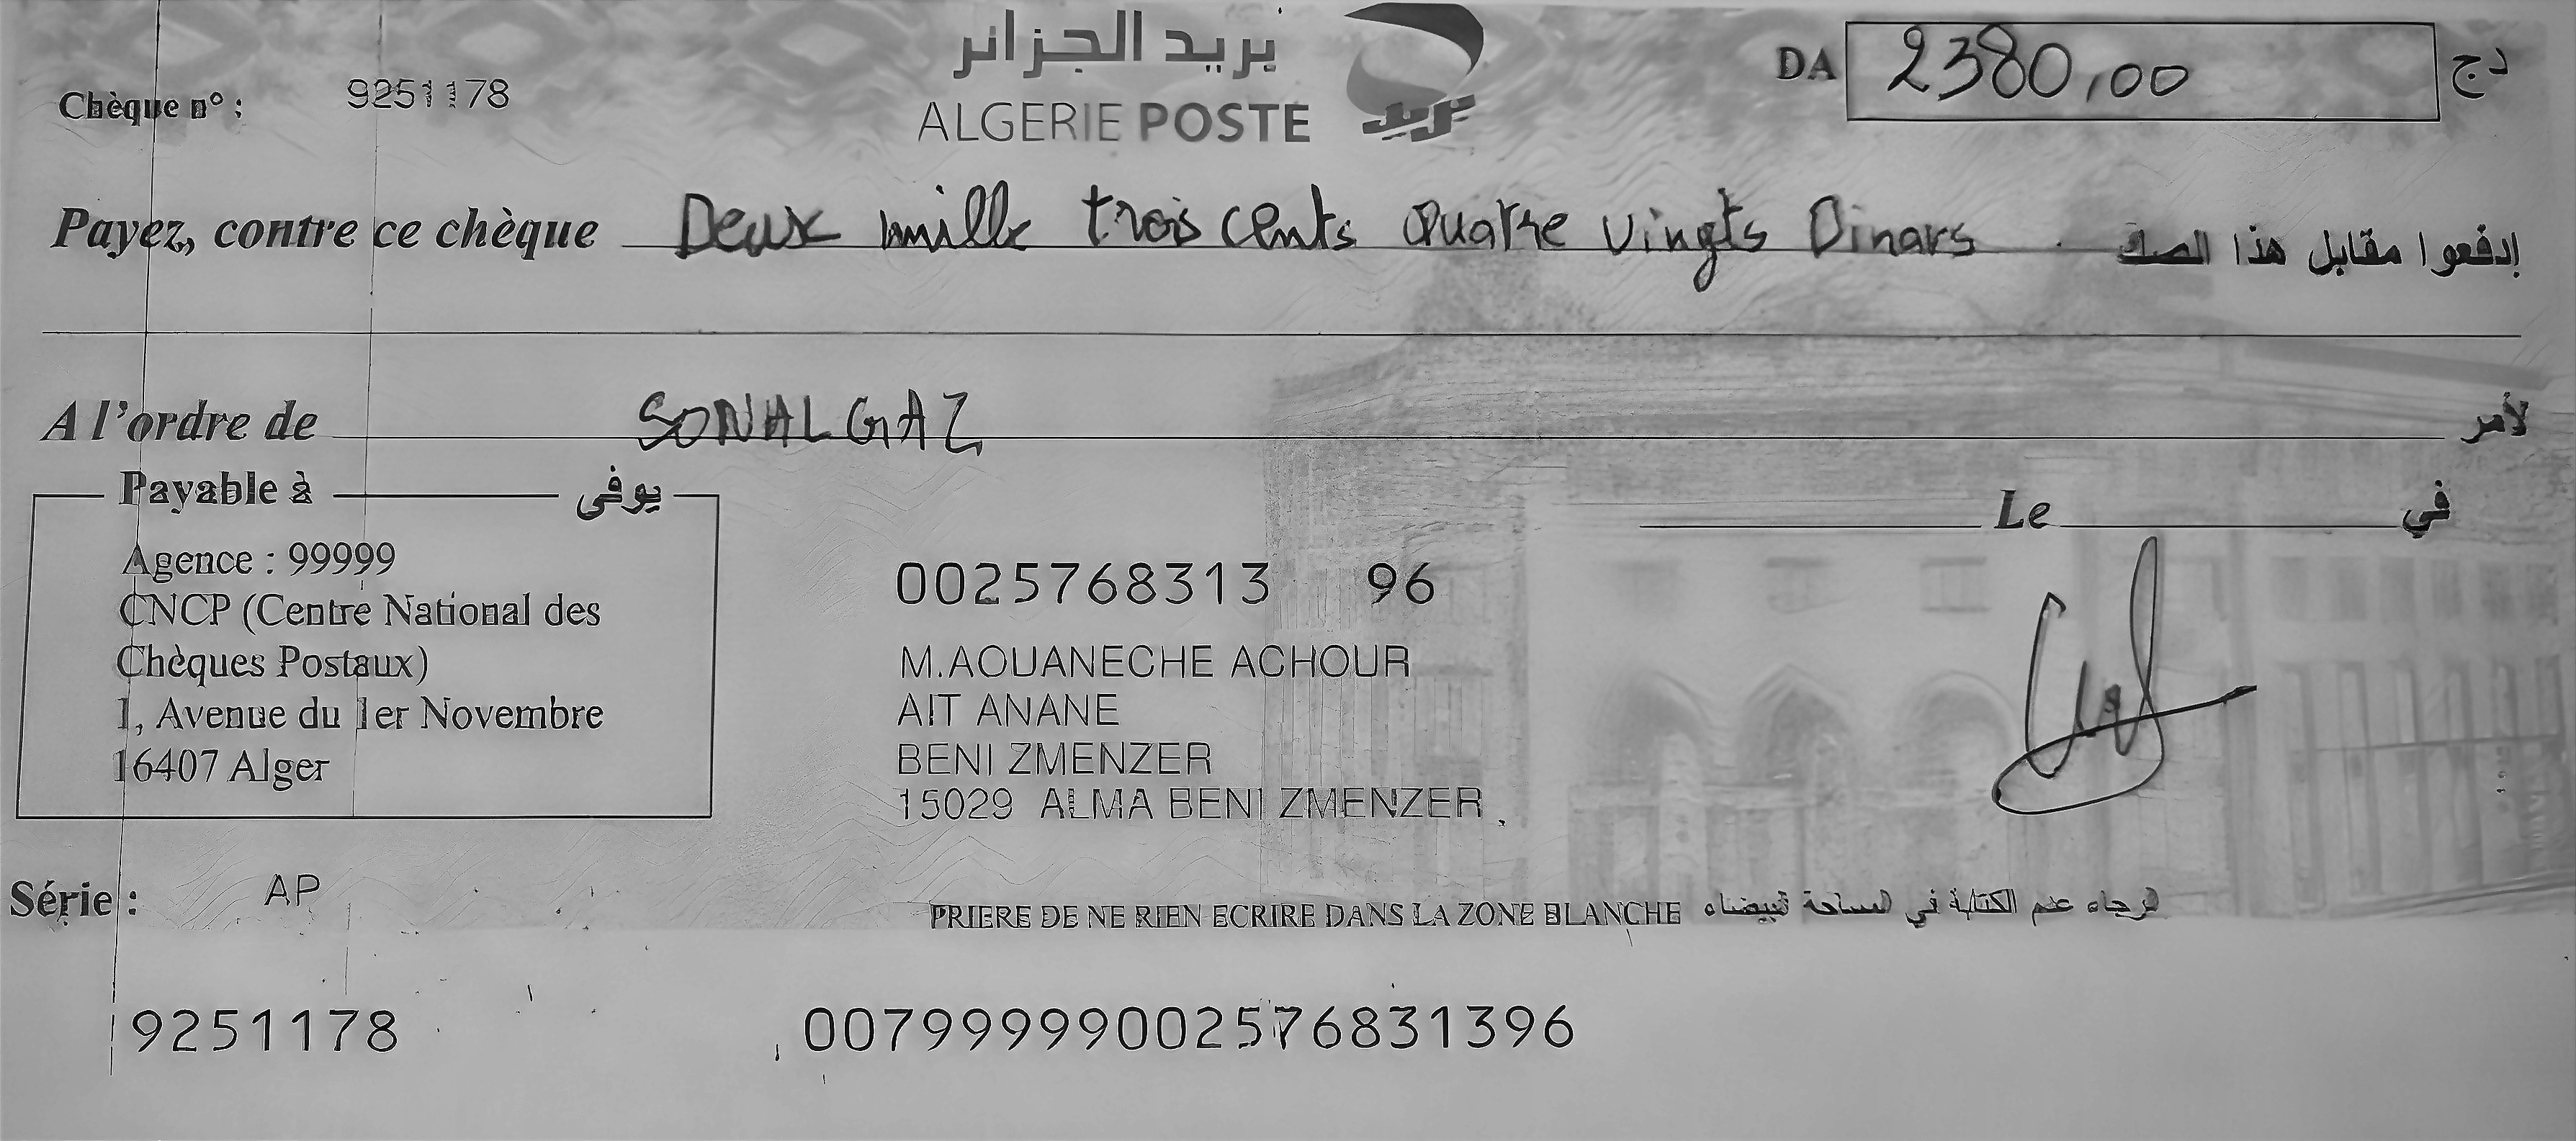 بريد الجزائر
ALGERIE POSTE
بريد
DA 2380,00 دج
Chèque n° : 9251178
Payez, contre ce chèque Deux mille trois cents quatre vingts Dinars إدفعوا مقابل هذا الصك
A l'ordre de SONALGAZ لأمر
Payable à يوفى
Agence : 99999
CNCP (Centre National des
Chèques Postaux)
1, Avenue du 1er Novembre
16407 Alger
Le في
0025768313 96
M.AOUANECHE ACHOUR
AIT ANANE
BENI ZMENZER
15029 ALMA BENI ZMENZER
Série : AP
PRIERE DE NE RIEN ECRIRE DANS LA ZONE BLANCHE الرجاء عدم الكتابة في المساحة البيضاء
9251178 00799999002576831396